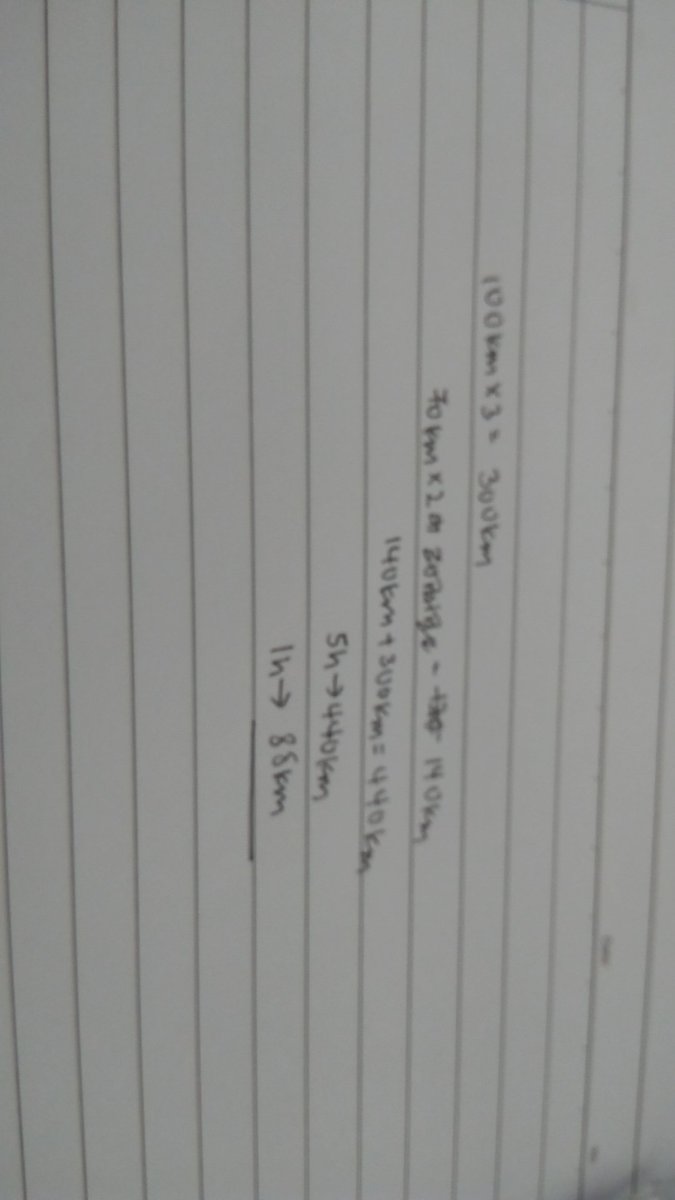 100km x 3 = 300km
70km x 2 = 140km
140km + 300km = 440km
5h → 440km
1h → 88km